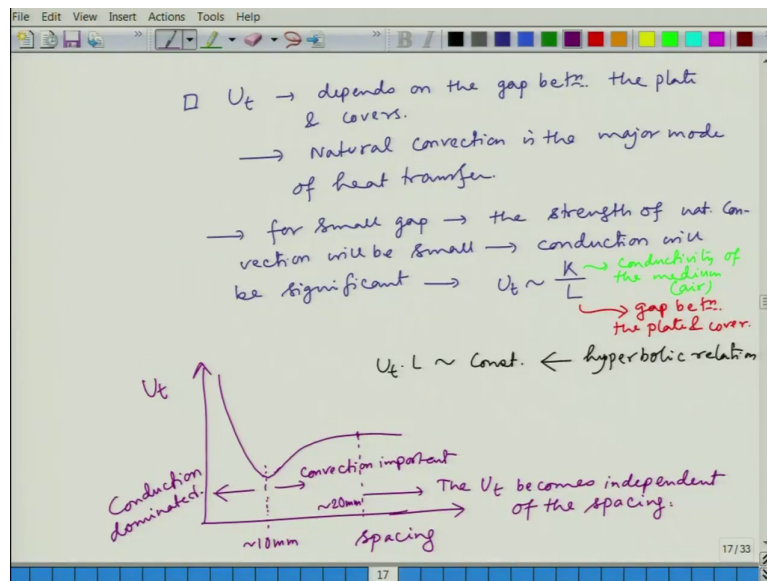 File Edit View Insert Actions Tools Help
□ Ut → depends on the gap betn. the plate
& covers.
→ Natural convection is the major mode
of heat transfer.
→ for small gap → the strength of nat. con-
vection will be small → conduction will
be significant → Ut ~ K/L
→ conductivity of
the medium
(air)
→ gap betn.
the plate & cover.
Ut. L ~ Const. ← hyperbolic relation
Ut
Conduction
dominated.
Convection important
~20mm
→ The Ut becomes independent
of the spacing.
~10mm
spacing
17/33
17